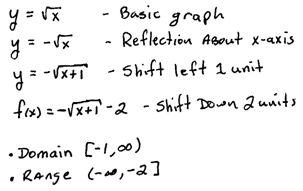 y = √x - Basic graph
y = -√x - Reflection About x-axis
y = -√x+1 - Shift left 1 unit
f(x) = -√x+1 - 2 - Shift Down 2 units
• Domain [-1,∞)
• Range (-∞,-2]